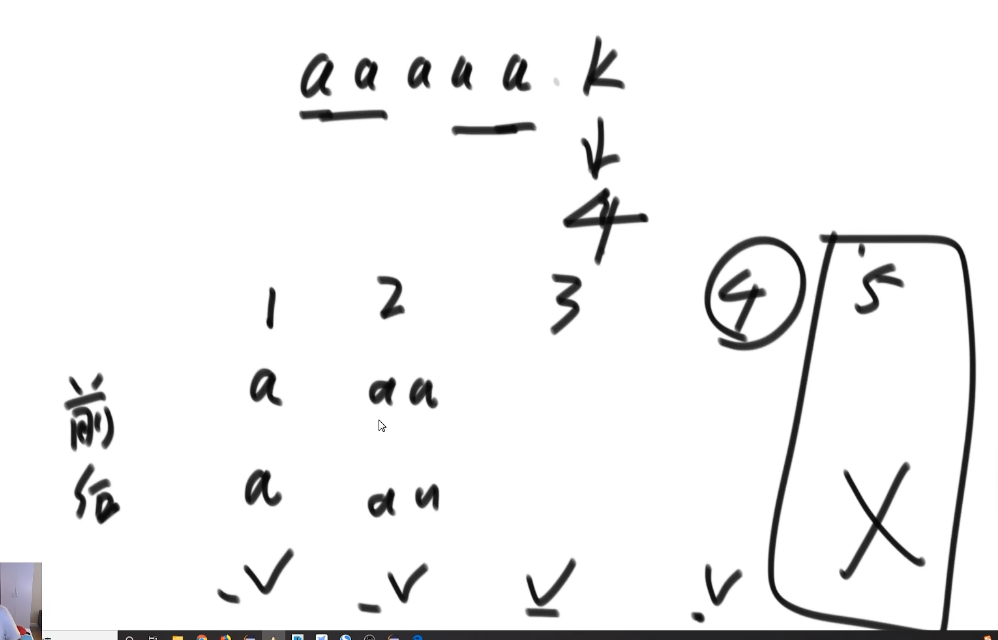 a a a a a . k
4
1 2 3 4 5
前 a a a
后 a a a